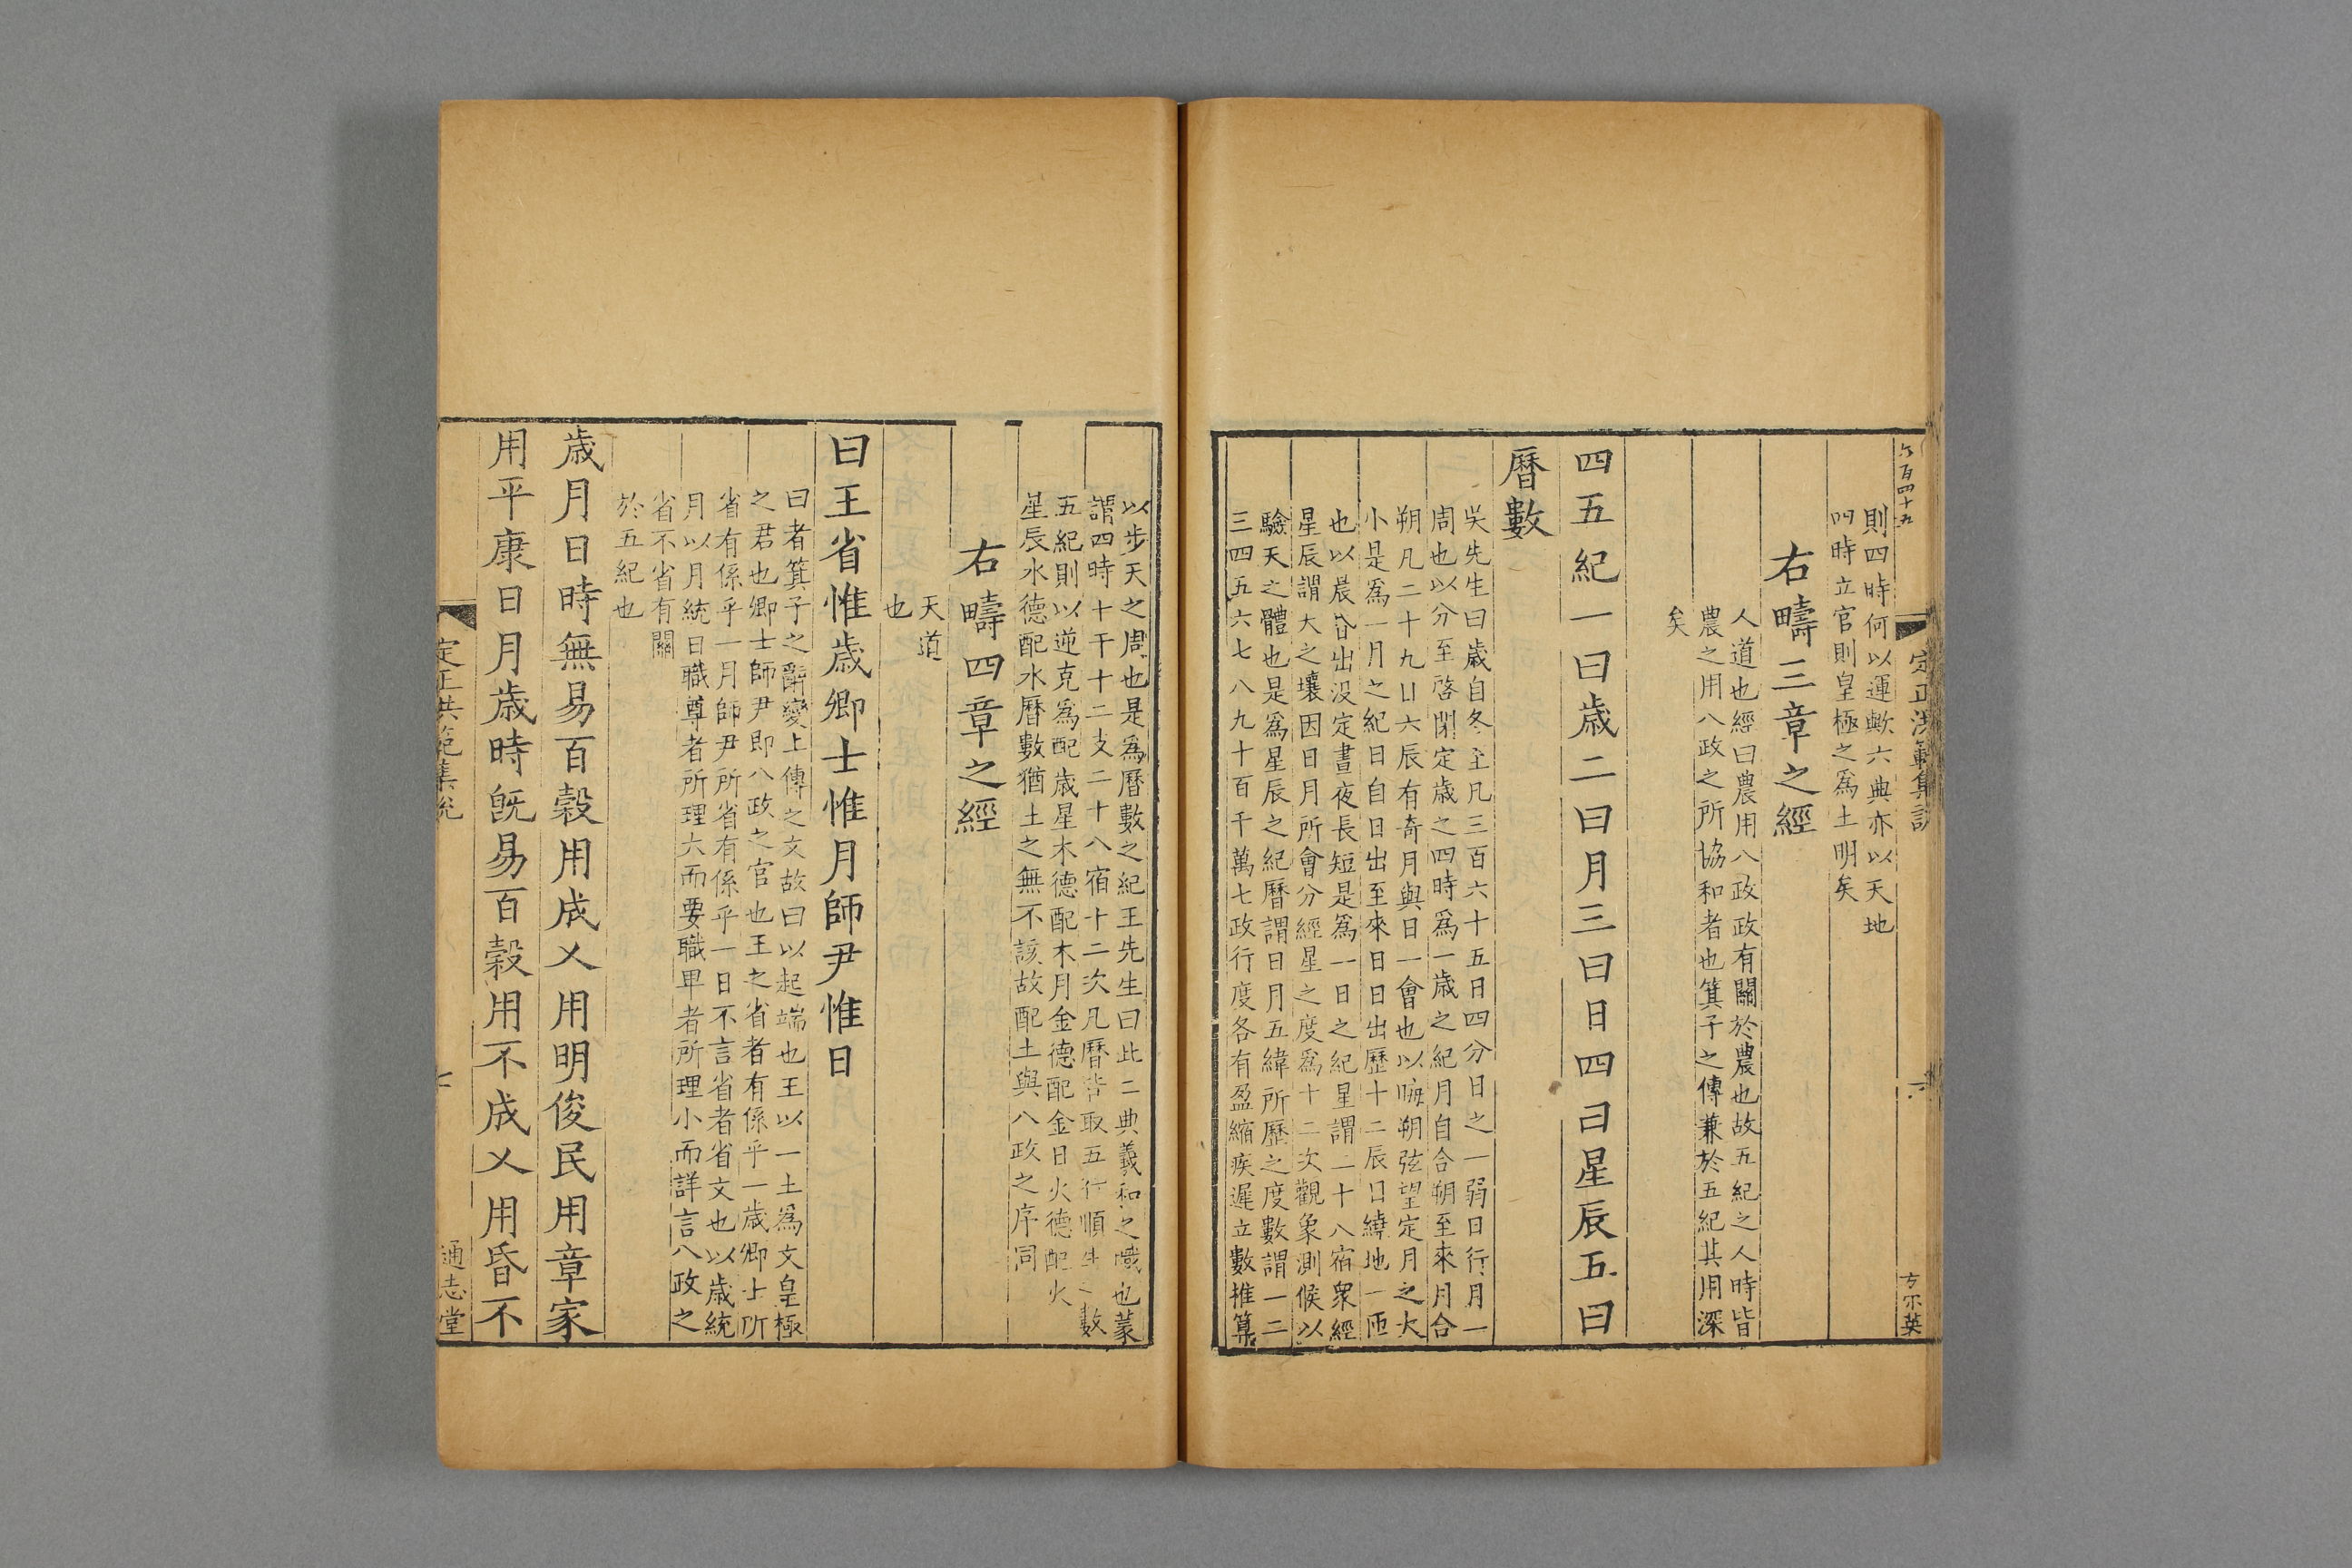 六百四十九
定正洪範集說
方宗英
則四時何以運歟六典亦以天地
四時立官則皇極之爲土明矣
右疇三章之經
人道也經曰農用八政政有關於農也故五紀之人時皆
農之用八政之所協和者也箕子之傳兼於五紀其用深
矣
四五紀一曰歲二曰月三曰日四曰星辰五曰
曆數
吳先生曰歲自冬至凡三百六十五日四分日之一弱日行月一
周也以分至啓閉定歲之四時爲一歲之紀月自合朔至來月合
朔凡二十九日六辰有奇月與日一會也以晦朔弦望定月之大
小是爲一月之紀日自日出至來日日出歷十二辰日繞地一匝
也以晨昏出没定晝夜長短是爲一日之紀星謂二十八宿衆經
星辰謂大之壤因日月所會分經星之度爲十二次觀象測候以
驗天之體也是爲星辰之紀曆謂日月五緯所歷之度數謂一二
三四五六七八九十百千萬七政行度各有盈縮疾遲立數推算
以步天之周也是爲曆數之紀王先生曰此二典羲和之職也蒙
謂四時十干十二支二十八宿十二次凡曆皆取五行順生之數
五紀則以逆克爲配歲星木德配木月金德配金日火德配火
星辰水德配水曆數猶土之無不該故配土與八政之序同
右疇四章之經
天道
也
曰王省惟歲卿士惟月師尹惟日
曰者箕子之辭變上傳之文故曰以起端也王以一土爲文皇極
之君也卿士師尹即八政之官也王之省者有係乎一歲卿士所
省有係乎一月師尹所省有係乎一日不言省者省文也以歲統
月以月統日職尊者所理大而要職卑者所理小而詳言八政之
省不省有關
於五紀也
歲月日時無易百穀用成乂用明俊民用章家
用平康日月歲時既易百穀用不成乂用昏不
定正洪範集說
七
通志堂